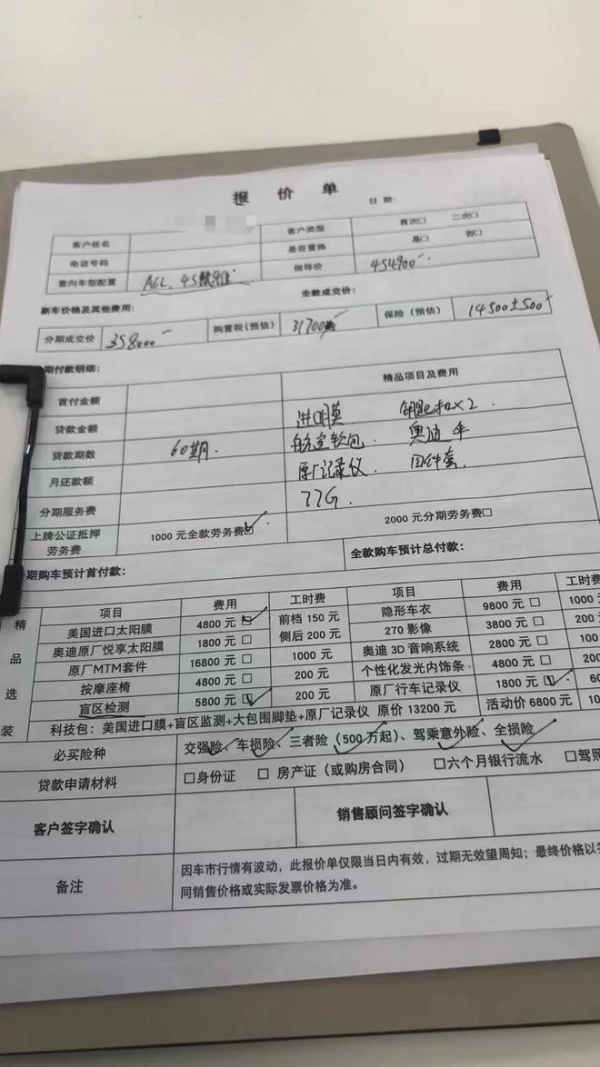 报 价 单
日 期:
客户姓名 客户类型 首次□ 二次□
电话号码 是否置换 是□ 否□
意向车型配置 A6L 45 指导价 454900
新车价格及其他费用: 全款成交价:
分期成交价 358000 购置税(预估) 31700 保险（预估) 14500±500
期付款明细: 精品项目及费用
首付金额 进口膜
贷款金额 航空软包 奥迪伞
贷款期数 60期 原厂记录仪 四件套
月还款额 77G
分期服务费
上牌公证抵押劳务费 1000 元全款劳务费☑ 2000 元分期劳务费□
期购车预计首付款: 全款购车预计总付款:
精品选装 项目 费用 工时费 项目 费用 工时
美国进口太阳膜 4800 元☑ 前档 150 元 侧后 200 元 隐形车衣 9800 元□ 1000
奥迪原厂悦享太阳膜 1800 元□ 270 影像 3800 元□ 200
原厂MTM套件 16800 元□ 1000 元 奥迪 3D 音响系统 2800 元□ 100
按摩座椅 4800 元□ 200 元 个性化发光内饰条 4800 元□ 200
盲区检测 5800 元☑ 200 元 原厂行车记录仪 1800 元☑ 60
科技包: 美国进口膜+盲区监测+大包围脚垫+原厂记录仪 原价 13200 元 活动价 6800 元 10
必买险种 交强险、车损险、三者险（500万起）、驾乘意外险、全损险
贷款申请材料 □身份证 □ 房产证（或购房合同） □六个月银行流水 □驾照
客户签字确认 销售顾问签字确认
备注 因车市行情有波动，此报价单仅限当日内有效，过期无效望周知；最终价格以
同销售价格或实际发票价格为准。